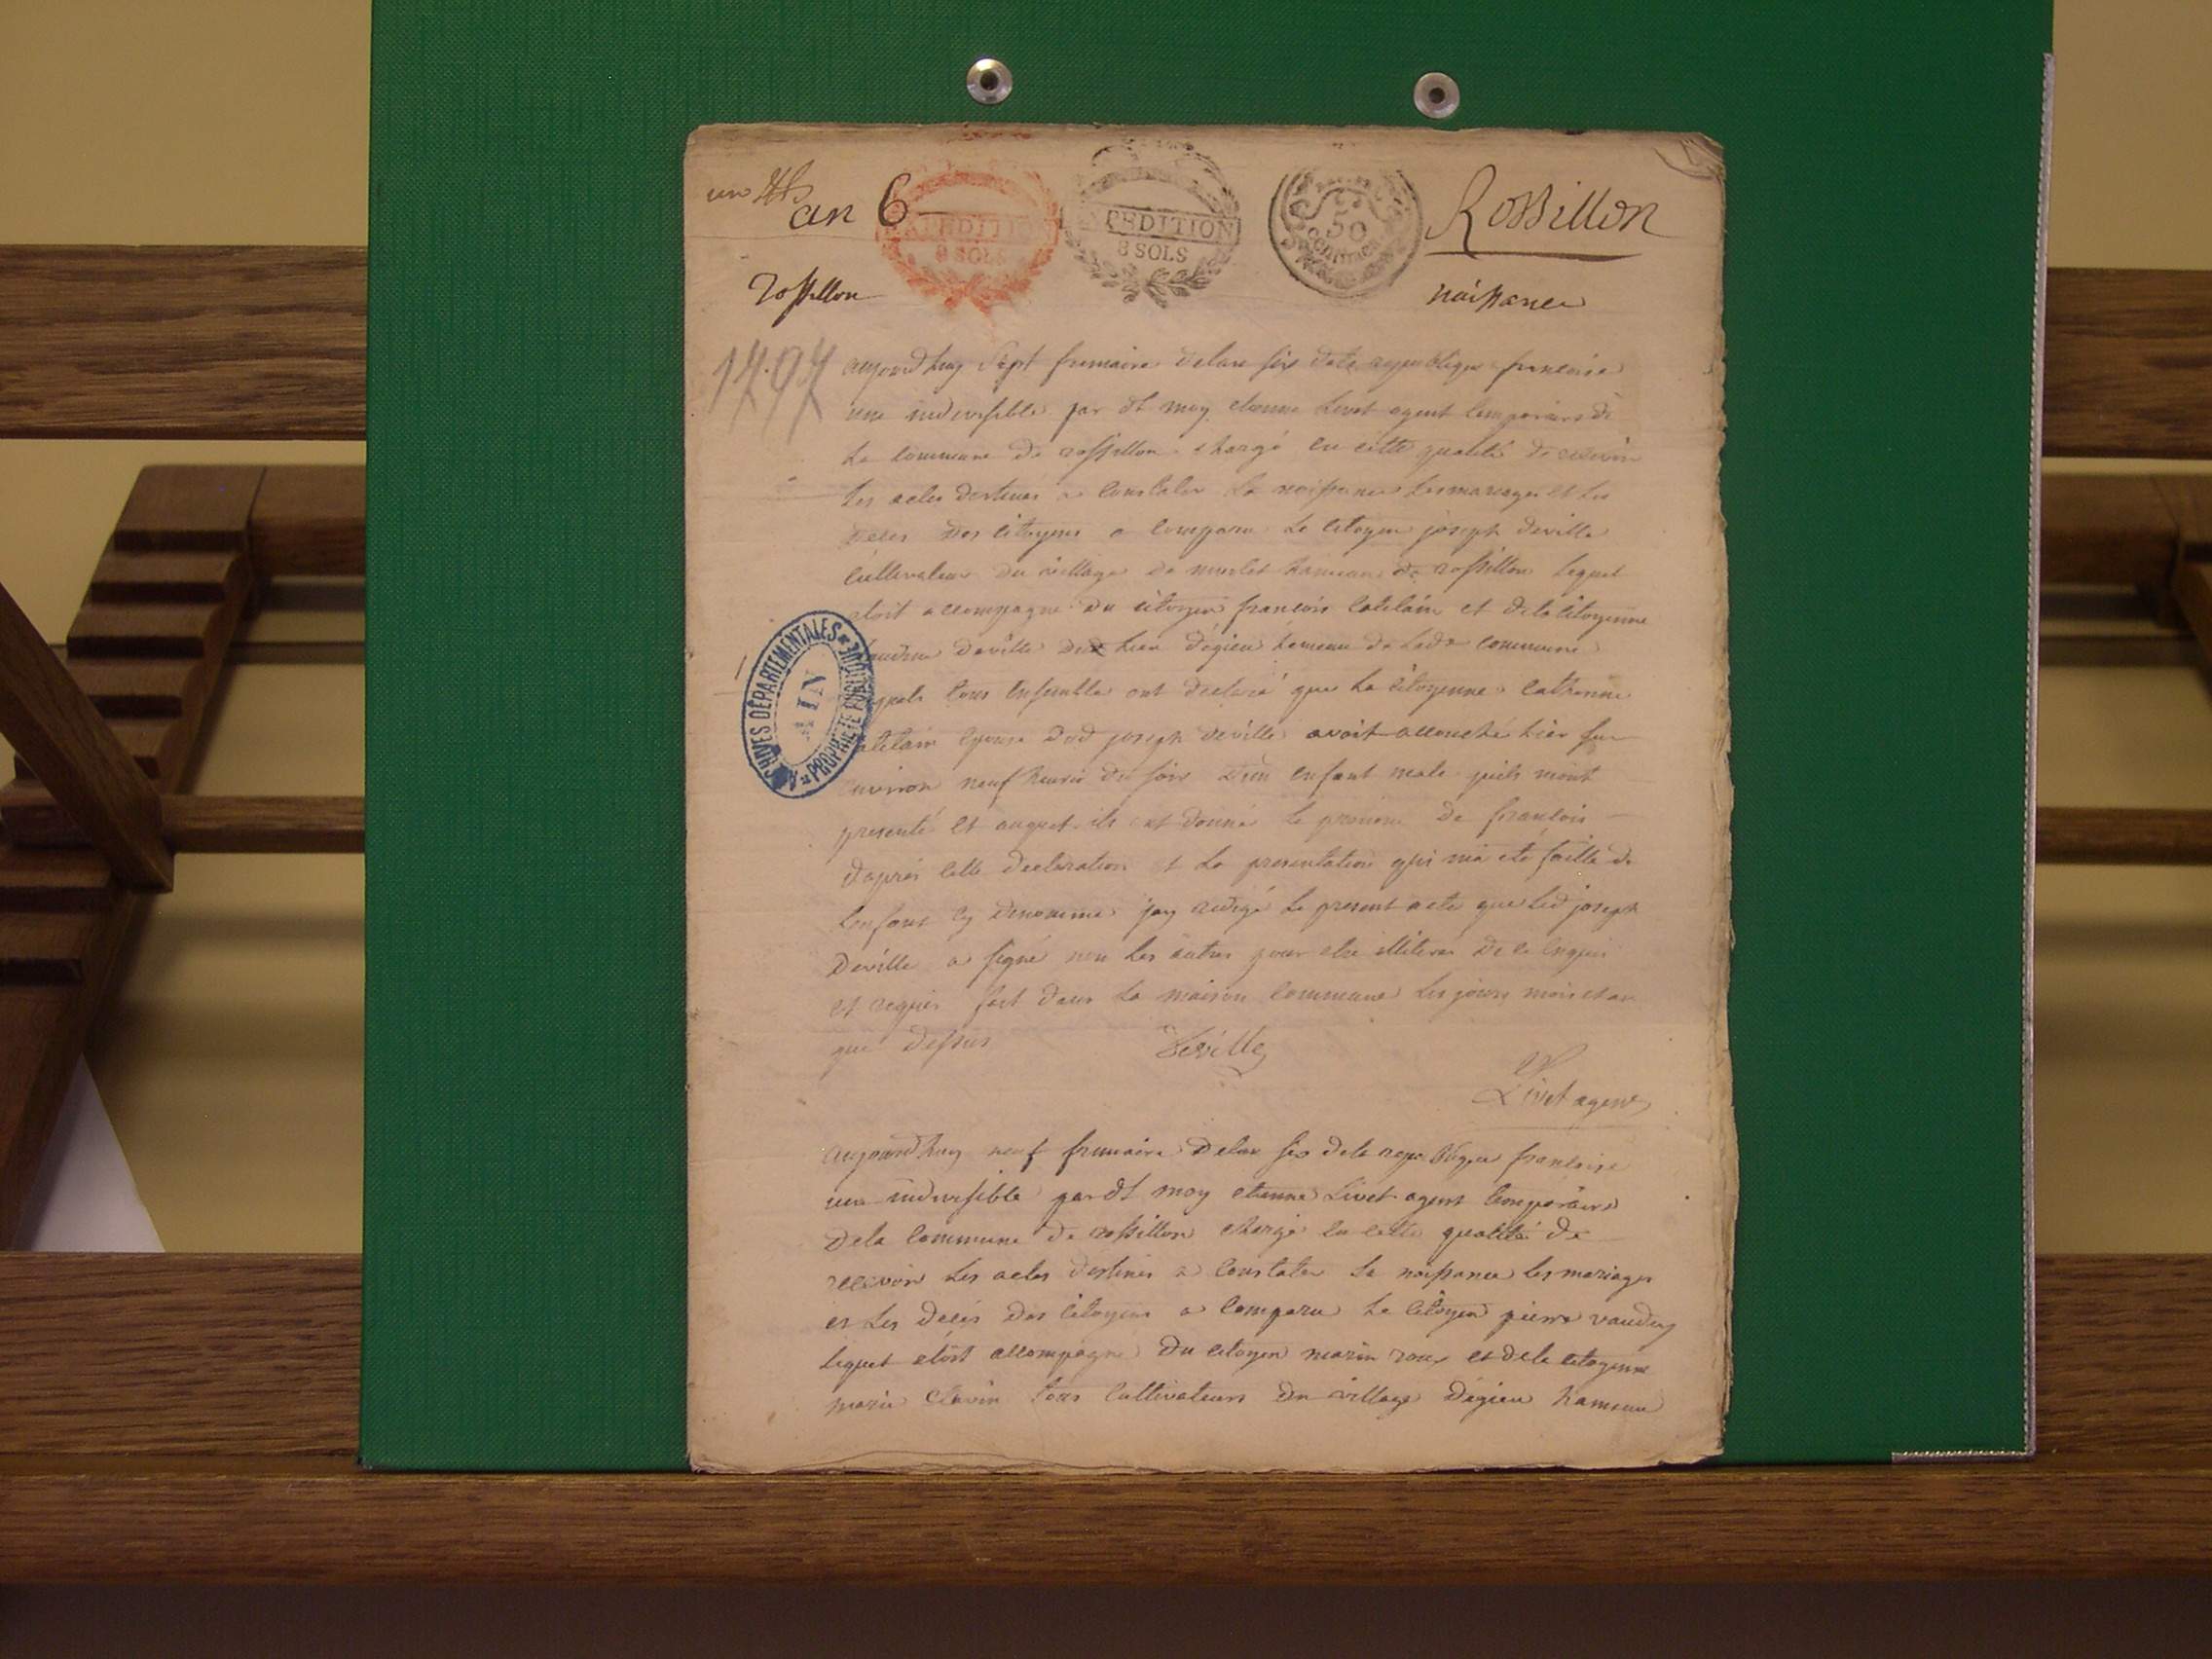 an 6
Rossillon
EXPEDITION
8 SOLS
EXPEDITION
8 SOLS
50
CENTIMES
rossillon
naissance
1797
aujourdhuy sept frimaire delan six dela republique francoise
une indivisible par dt moy etienne Livet agent temporaire de
La commune de rossillon chargé en cette qualité de recevoir
les actes destinés a constater La naissance Les mariages et Les
décés des citoyens a comparu Le citoyen joseph deville
cultivateur du village de hameau de rossillon Lequel
etoit accompagné du citoyen francois catelain et dela citoyenne
deville du lieu d'égieu hameau de Lade commune
Lesquels tous ensemble ont declaré que La citoyenne catherine
catelain epouse dud joseph deville avoit accouché hier sur
environ neuf heures du soir d'un enfant male quils mont
presenté et auquel ils ont donné Le prenom de francois
d'après cette declaration et La presentation qui ma eté faitte de
Lenfant cy denommé jay redigé Le present acte que Led joseph
Deville a signé non Les autres pour etre illiteres de ce enquis
et requis fait dans La maison commune Les jours mois et an
que dessus
Deville
Livet agent
aujourdhuy neuf frimaire Delan six dela republique francoise
une indivisible par dt moy etienne Livet agent temporaire
Dela commune de rossillon chargé en cette qualité de
recevoir Les actes destinés a constater La naissance Les mariages
et Les decés des citoyens a comparu Le citoyen pierre vaudey
Lequel etoit accompagné du citoyen marin roux et dela citoyenne
marie clavin tous cultivateurs du village d'égieu hameau
ARCHIVES DÉPARTEMENTALES
AIN
PROPRIÉTÉ PUBLIQUE